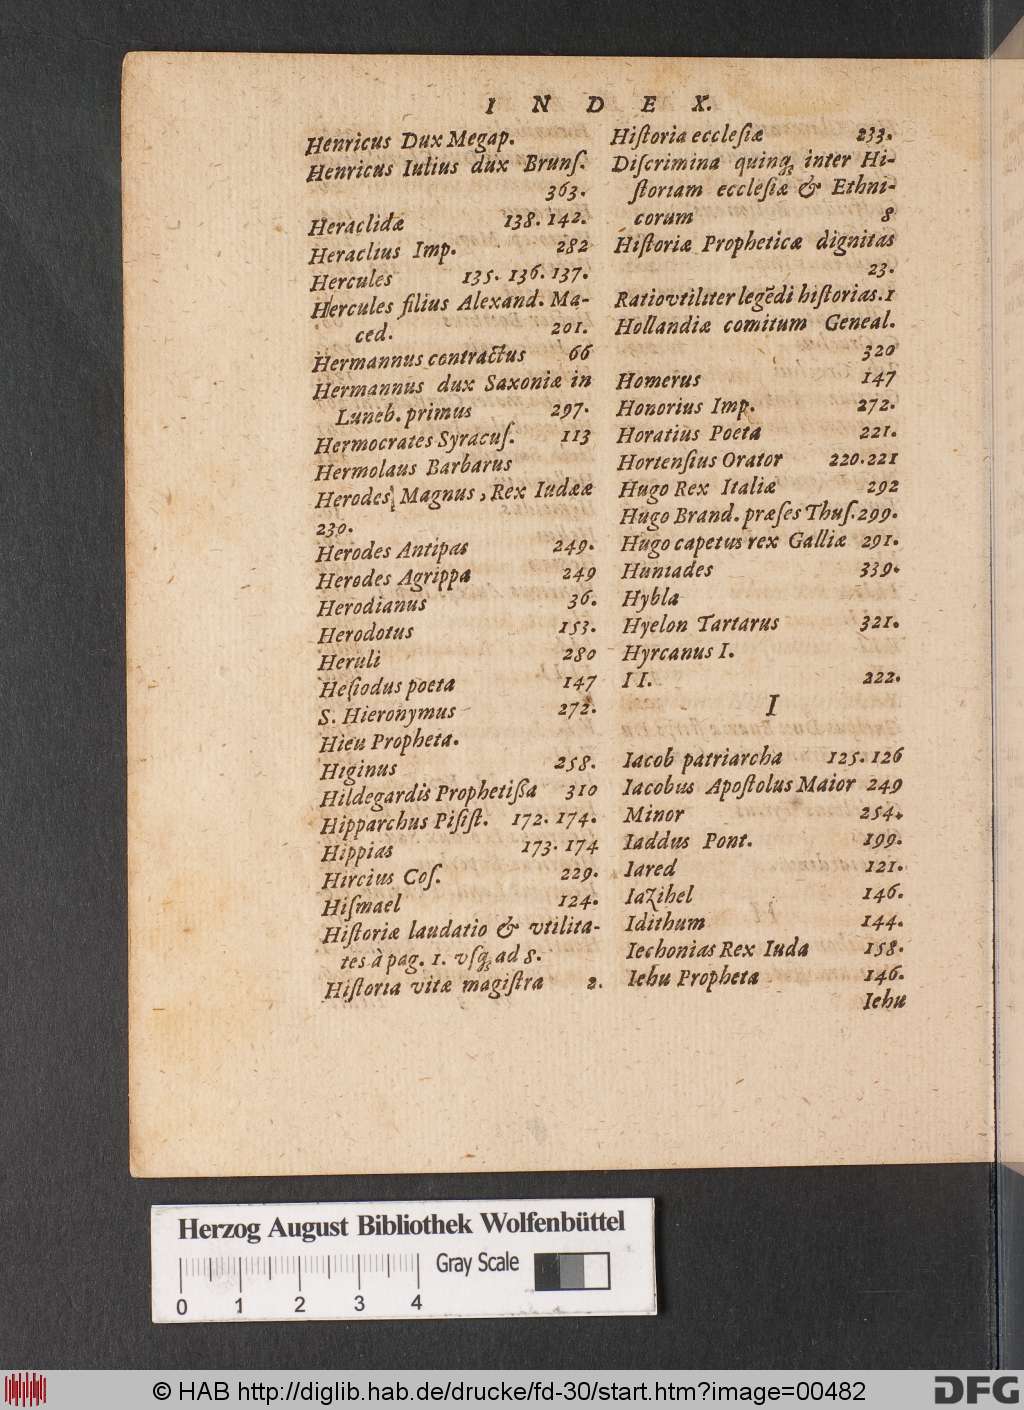 I N D E X.
Henricus Dux Megap.
Henricus Iulius dux Brunſ.
363.
Heraclidæ 138. 142.
Heraclius Imp. 282
Hercules 135. 136. 137.
Hercules filius Alexand. Ma-
ced. 201.
Hermannus contractus 66
Hermannus dux Saxoniæ in
Luneb. primus 297.
Hermocrates Syracuſ. 113
Hermolaus Barbarus
Herodes Magnus, Rex Iudææ
230.
Herodes Antipas 249.
Herodes Agrippa 249
Herodianus 36.
Herodotus 153.
Heruli 280
Heſiodus poeta 147
S. Hieronymus 272.
Hieu Propheta.
Higinus 258.
Hildegardis Prophetiſſa 310
Hipparchus Piſiſt. 172. 174.
Hippias 173. 174
Hircius Coſ. 229.
Hiſmael 124.
Hiſtoriæ laudatio & vtilita-
tes à pag. 1. vſq; ad 8.
Hiſtoria vitæ magiſtra 2.
Hiſtoria eccleſiæ 233.
Diſcrimina quinq; inter Hi-
ſtoriam eccleſiæ & Ethni-
corum 8
Hiſtoriæ Propheticæ dignitas
23.
Ratio vtiliter legēdi hiſtorias. 1
Hollandiæ comitum Geneal.
320
Homerus 147
Honorius Imp. 272.
Horatius Poeta 221.
Hortenſius Orator 220. 221
Hugo Rex Italiæ 292
Hugo Brand. præſes Thuſ. 299.
Hugo capetus rex Galliæ 291.
Huniades 339.
Hybla
Hyelon Tartarus 321.
Hyrcanus I.
II. 222.
I
Iacob patriarcha 125. 126
Iacobus Apoſtolus Maior 249
Minor 254.
Iaddus Pont. 199.
Iared 121.
IaZihel 146.
Idithum 144.
Iechonias Rex Iuda 158.
Iehu Propheta 146.
Iehu
Herzog August Bibliothek Wolfenbüttel
Gray Scale
0 1 2 3 4
© HAB http://diglib.hab.de/drucke/fd-30/start.htm?image=00482
DFG